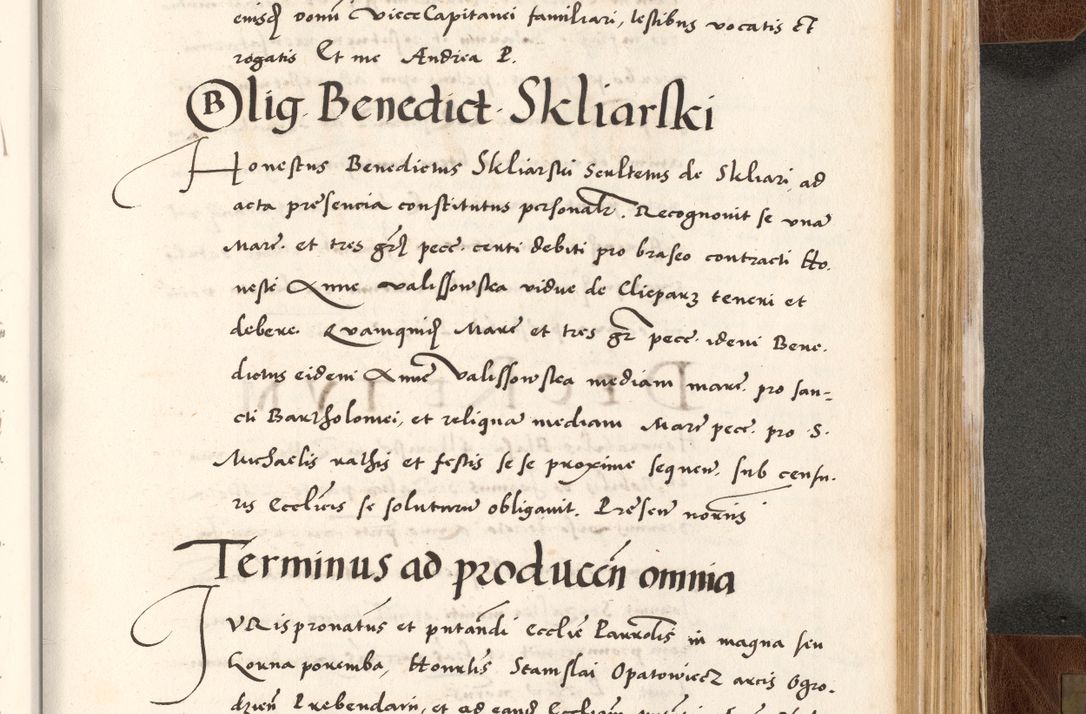 eiusdē domū Vicce Capitanei familiari, testibus vocatis Et
rogatis Et me Andrea P.
Oblig. Benedict. Skliarski
Honestus Benedictus Skliarski Scultetus de Skliari, ad
acta presencia constitutus personalr. Recognouit se vna
Marc. et tres grs pecc. centi debiti pro braseo contracti Ho.
neste Anne Valissowska vidue de Clieparz teneri et
debere. Quamquidē Marc et tres gr pecc. idem Bene.
dictus eidem Anne Valissowska mediam marc. pro san-
cti Bartholomei, et reliqua mediam Marc pecc. pro S.
Michaelis rathis et festis se se proxime sequen. sub censu.
ris Ecclicis se soluturu obligauit. Presen nortis
Terminus ad producēn omnia
IVRispronatus et pntandi Ecclie Parrolis in magna seu
Gorna poremba, Honrlis Stanislai Opatowiecz arcis Ogro-
dzien Prebendarii, et ad eand Eccliam